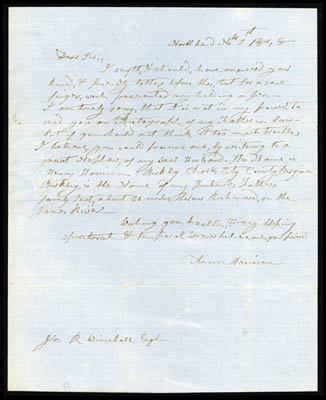 North bend Nov. 1st
Dear Sir,
I ought, & should, have answered your
kind, & letter, before this, but for a sore
finger, which prevented my holding a pen—
I am truly sorry, that it is not in my power, to
send you an Autograph of my Father in law—
but if you should not think it too much trouble,
I believe, you could procure one, by writing to a
great Nephew, of my dear Husband. His Name is
Harrison — Berkley Charles City County Virginia
Berkley, is the Home of my Husband's Father,
family seat, about miles below Richmond, on the
James River.
Wishing you health, & every blessing
& temporal I remain your friend
Anna Harrison
Jas R Winchell Esqr